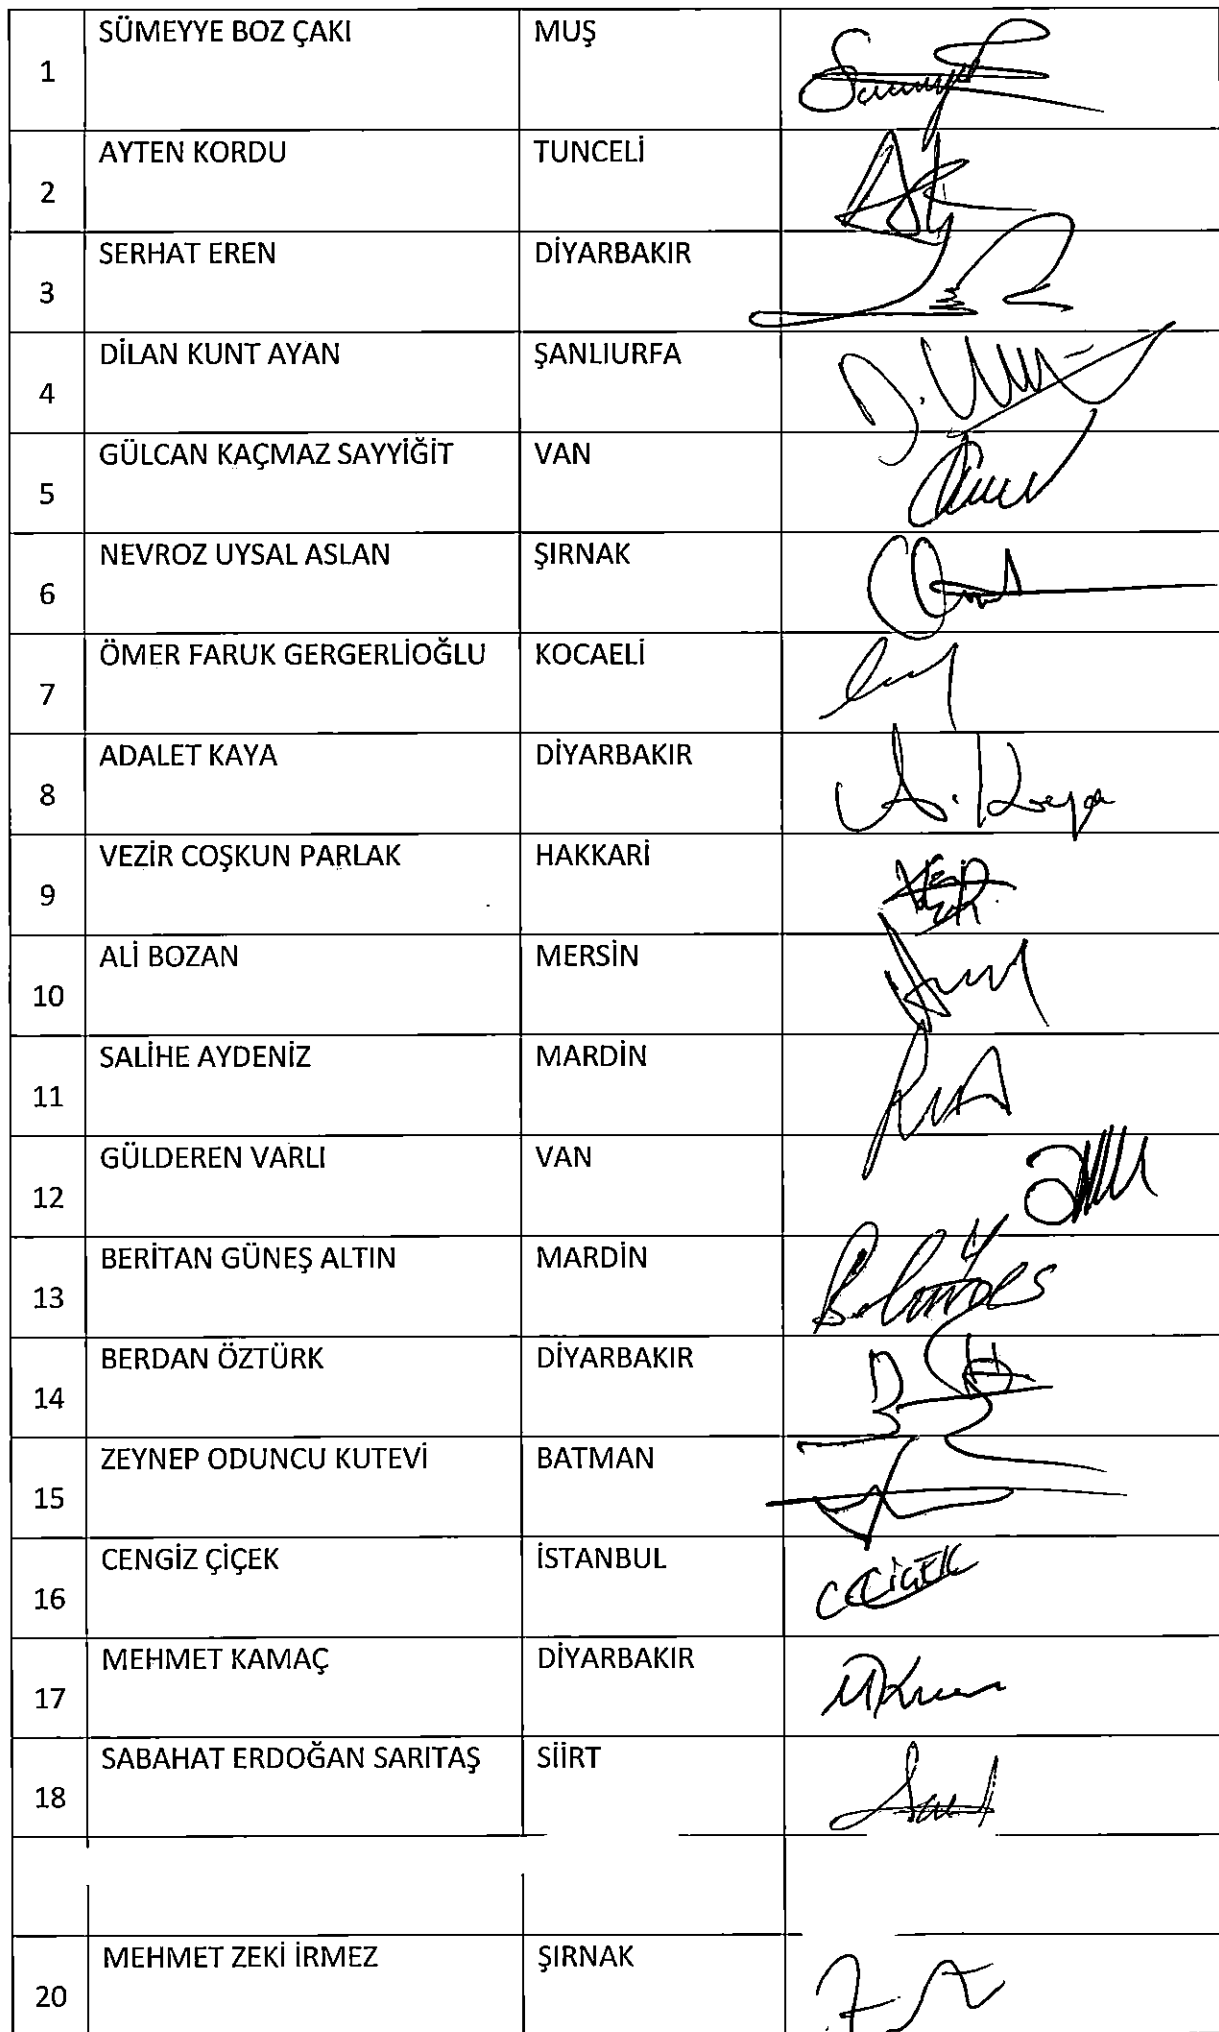 1 SÜMEYYE BOZ ÇAKI MUŞ
2 AYTEN KORDU TUNCELİ
3 SERHAT EREN DİYARBAKIR
4 DİLAN KUNT AYAN ŞANLIURFA
5 GÜLCAN KAÇMAZ SAYYİĞİT VAN
6 NEVROZ UYSAL ASLAN ŞIRNAK
7 ÖMER FARUK GERGERLİOĞLU KOCAELİ
8 ADALET KAYA DİYARBAKIR A. Kaya
9 VEZİR COŞKUN PARLAK HAKKARİ
10 ALİ BOZAN MERSİN
11 SALİHE AYDENİZ MARDİN
12 GÜLDEREN VARLI VAN
13 BERİTAN GÜNEŞ ALTIN MARDİN
14 BERDAN ÖZTÜRK DİYARBAKIR
15 ZEYNEP ODUNCU KUTEVİ BATMAN
16 CENGİZ ÇİÇEK İSTANBUL
17 MEHMET KAMAÇ DİYARBAKIR
18 SABAHAT ERDOĞAN SARITAŞ SİİRT
20 MEHMET ZEKİ İRMEZ ŞIRNAK